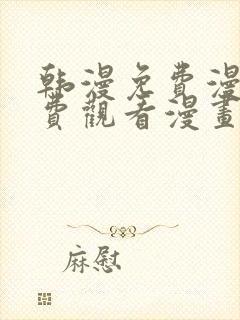 韩漫免费漫
費觀看漫畫
麻慰